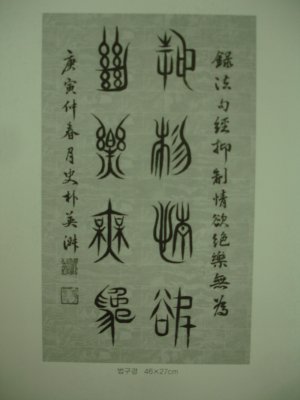 錄法句經抑制情欲絕樂無為
抑制情欲
絕樂無為
庚寅仲春月史朴英
법구경 46×27cm